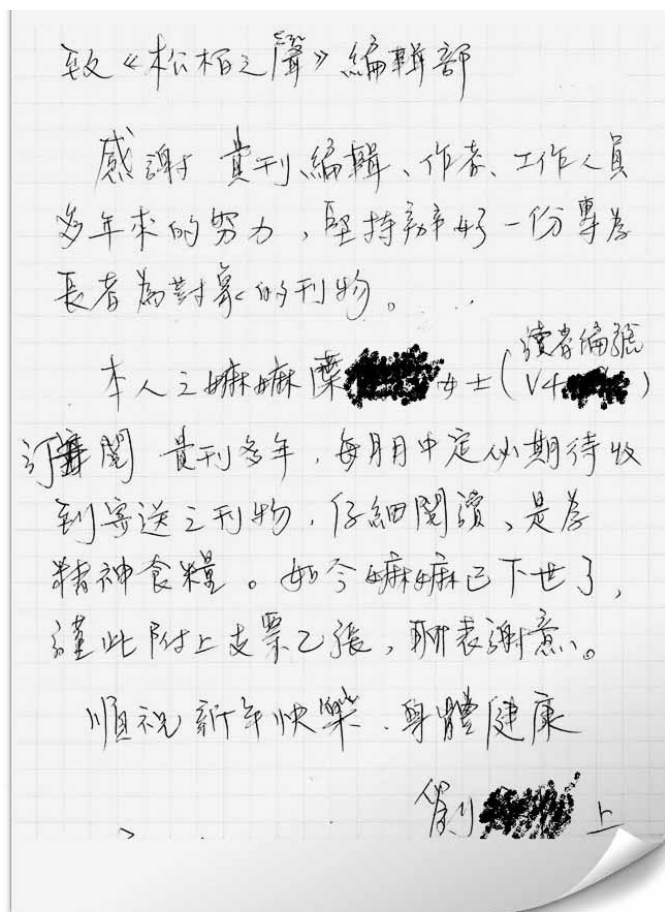 致《松柏之聲》編輯部
感謝 貴刊編輯、作者、工作人員
多年來的努力，堅持辦好一份專為
長者為對象的刊物。
本人之嫲嫲陳 女士(讀者編號
V4 )
訂閱 貴刊多年，每月月中定必期待收
到寄送之刊物，仔細閱讀，是為
精神食糧。如今嫲嫲已下世了，
謹此附上支票乙張，聊表謝意。
順祝新年快樂、身體健康
劉 上